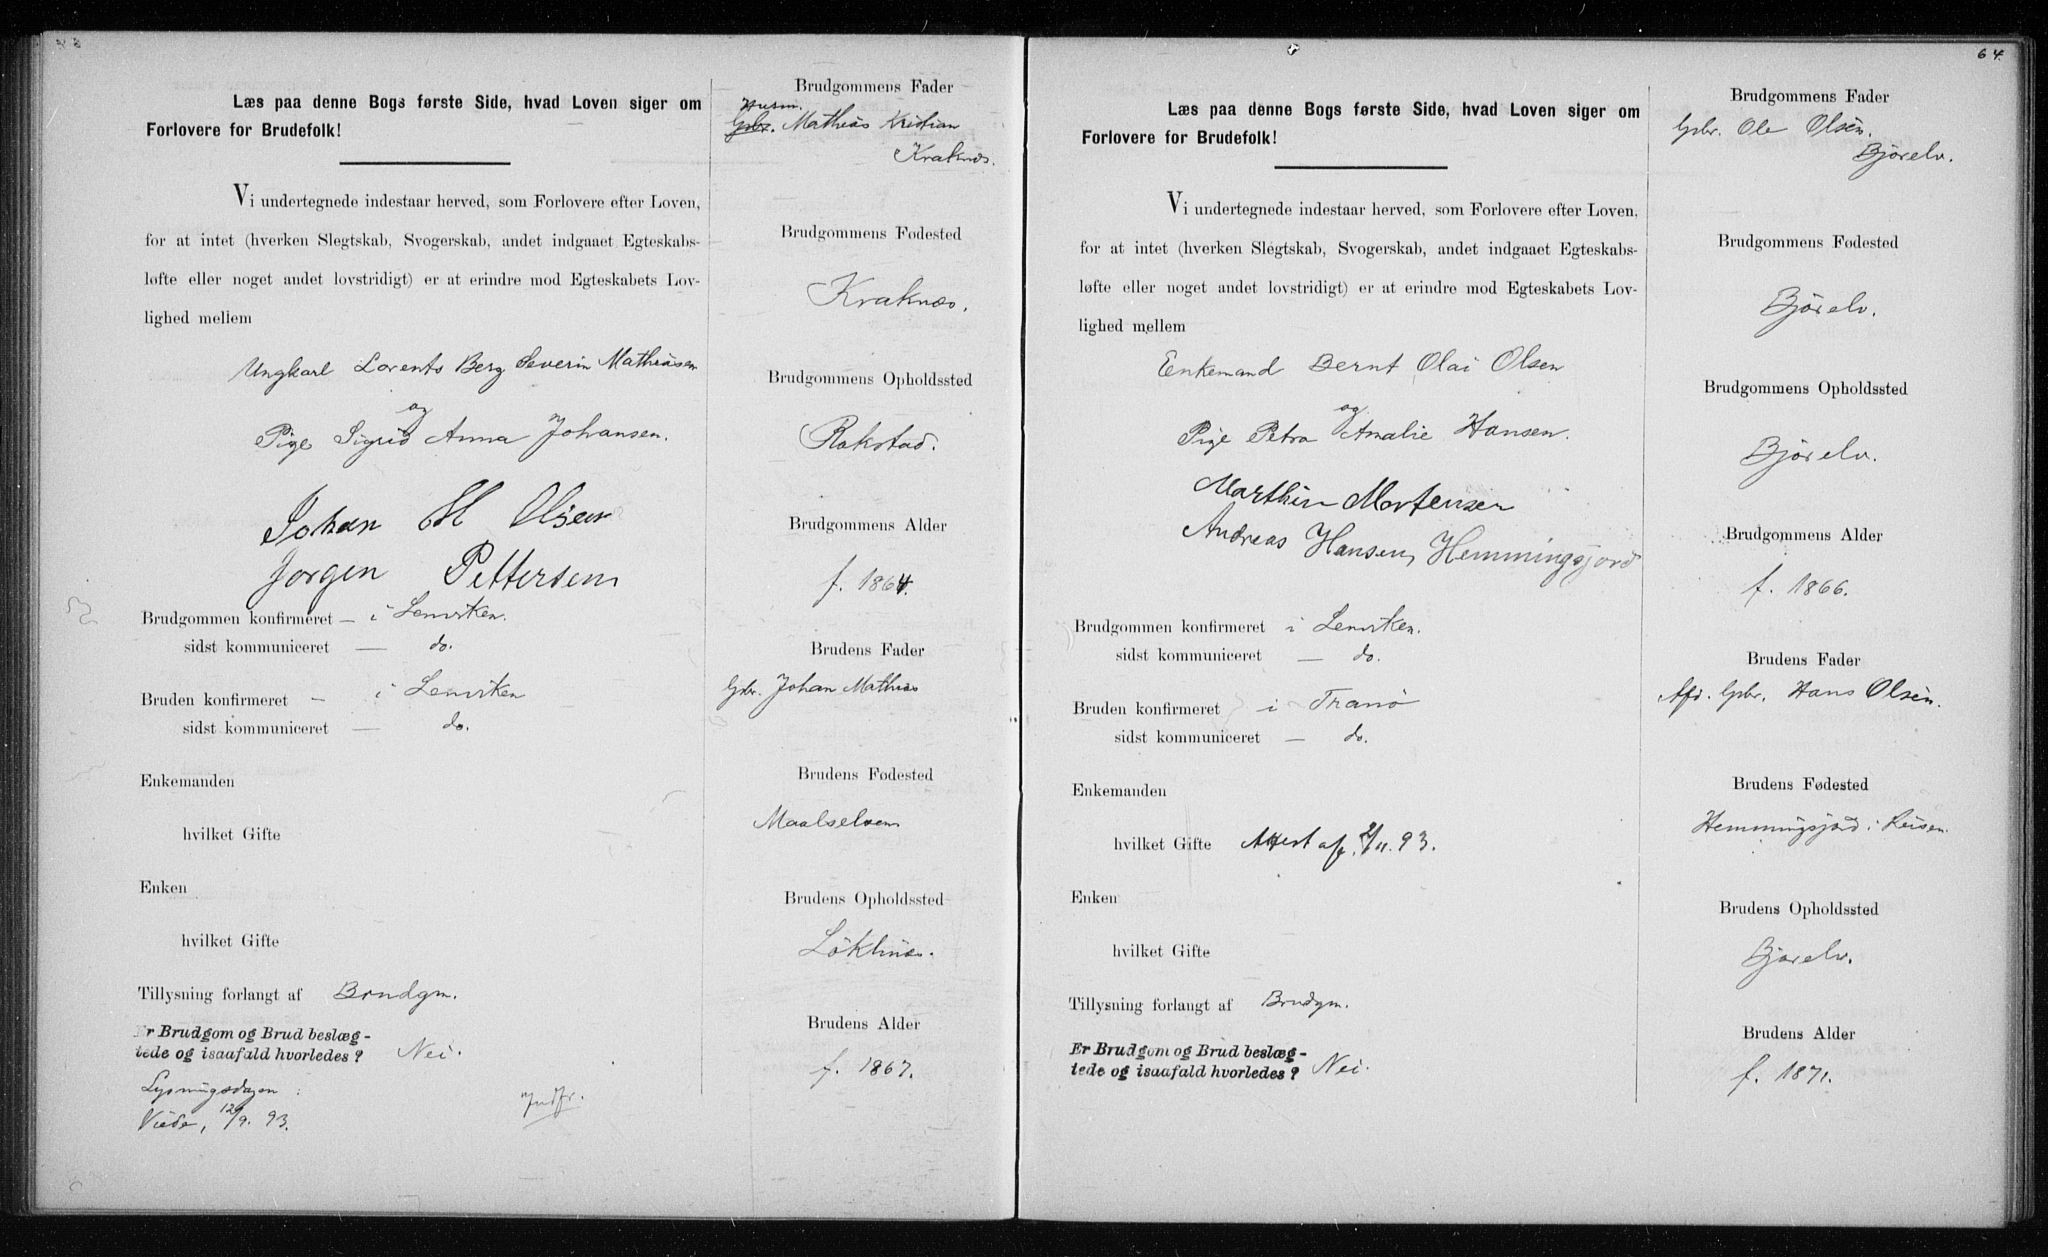 Læs paa denne Bogs første Side, hvad Loven siger om
Forlovere for Brudefolk!
Vi undertegnede indestaar herved, som Forlovere efter Loven,
for at intet (hverken Slegtskab, Svogerskab, andet indgaaet Egteskabs-
løfte eller noget andet lovstridigt) er at erindre mod Egteskabets Lov-
lighed mellem
Ungkarl Lorents Berg Severin Mathiasen
og
Pige Sigrid Anna Johansen.
Johan M Olsen
Jørgen Pettersen
Brudgommen konfirmeret — i Lenviken.
sidst kommuniceret — do.
Bruden konfirmeret — i Lenviken
sidst kommuniceret — do.
Enkemanden
hvilket Gifte
Enken
hvilket Gifte
Tillysning forlangt af Brudgm.
Er Brudgom og Brud beslæg-
tede og isaafald hvorledes? Nei.
Lysningsdagen :
Viede, 12/9. 93.
Brudgommens Fader
Husm.
Gbr. Mathias Kristian
Kraknæs.
Brudgommens Fødested
Kraknæs.
Brudgommens Opholdssted
Rokstad.
Brudgommens Alder
f. 1864.
Brudens Fader
Gbr. Johan Mathias
Brudens Fødested
Maalselven
Brudens Opholdssted
Brudens Alder
f. 1867.
64
Læs paa denne Bogs første Side, hvad Loven siger om
Forlovere for Brudefolk!
Vi undertegnede indestaar herved, som Forlovere efter Loven,
for at intet (hverken Slegtskab, Svogerskab, andet indgaaet Egteskabs-
løfte eller noget andet lovstridigt) er at erindre mod Egteskabets Lov-
lighed mellem
Enkemand Bernt Olai Olsen
og
Pige Petra Amalie Hansen.
Marthin Mortensen
Andreas Hansen, Hemmingsjord
Brudgommen konfirmeret i Lenviken.
sidst kommuniceret — do.
Bruden konfirmeret i Tranø
sidst kommuniceret — do.
Enkemanden
hvilket Gifte Attest afg. 2/11. 93.
Enken
hvilket Gifte
Tillysning forlangt af Brudgm.
Er Brudgom og Brud beslæg-
tede og isaafald hvorledes? Nei.
Brudgommens Fader
Gbr. Ole Olsen.
Bjørelv.
Brudgommens Fødested
Bjørelv.
Brudgommens Opholdssted
Bjørelv.
Brudgommens Alder
f. 1866.
Brudens Fader
Afd. Gbr. Hans Olsen.
Brudens Fødested
Hemmingsjord i Reisen.
Brudens Opholdssted
Bjørelv.
Brudens Alder
f. 1871.